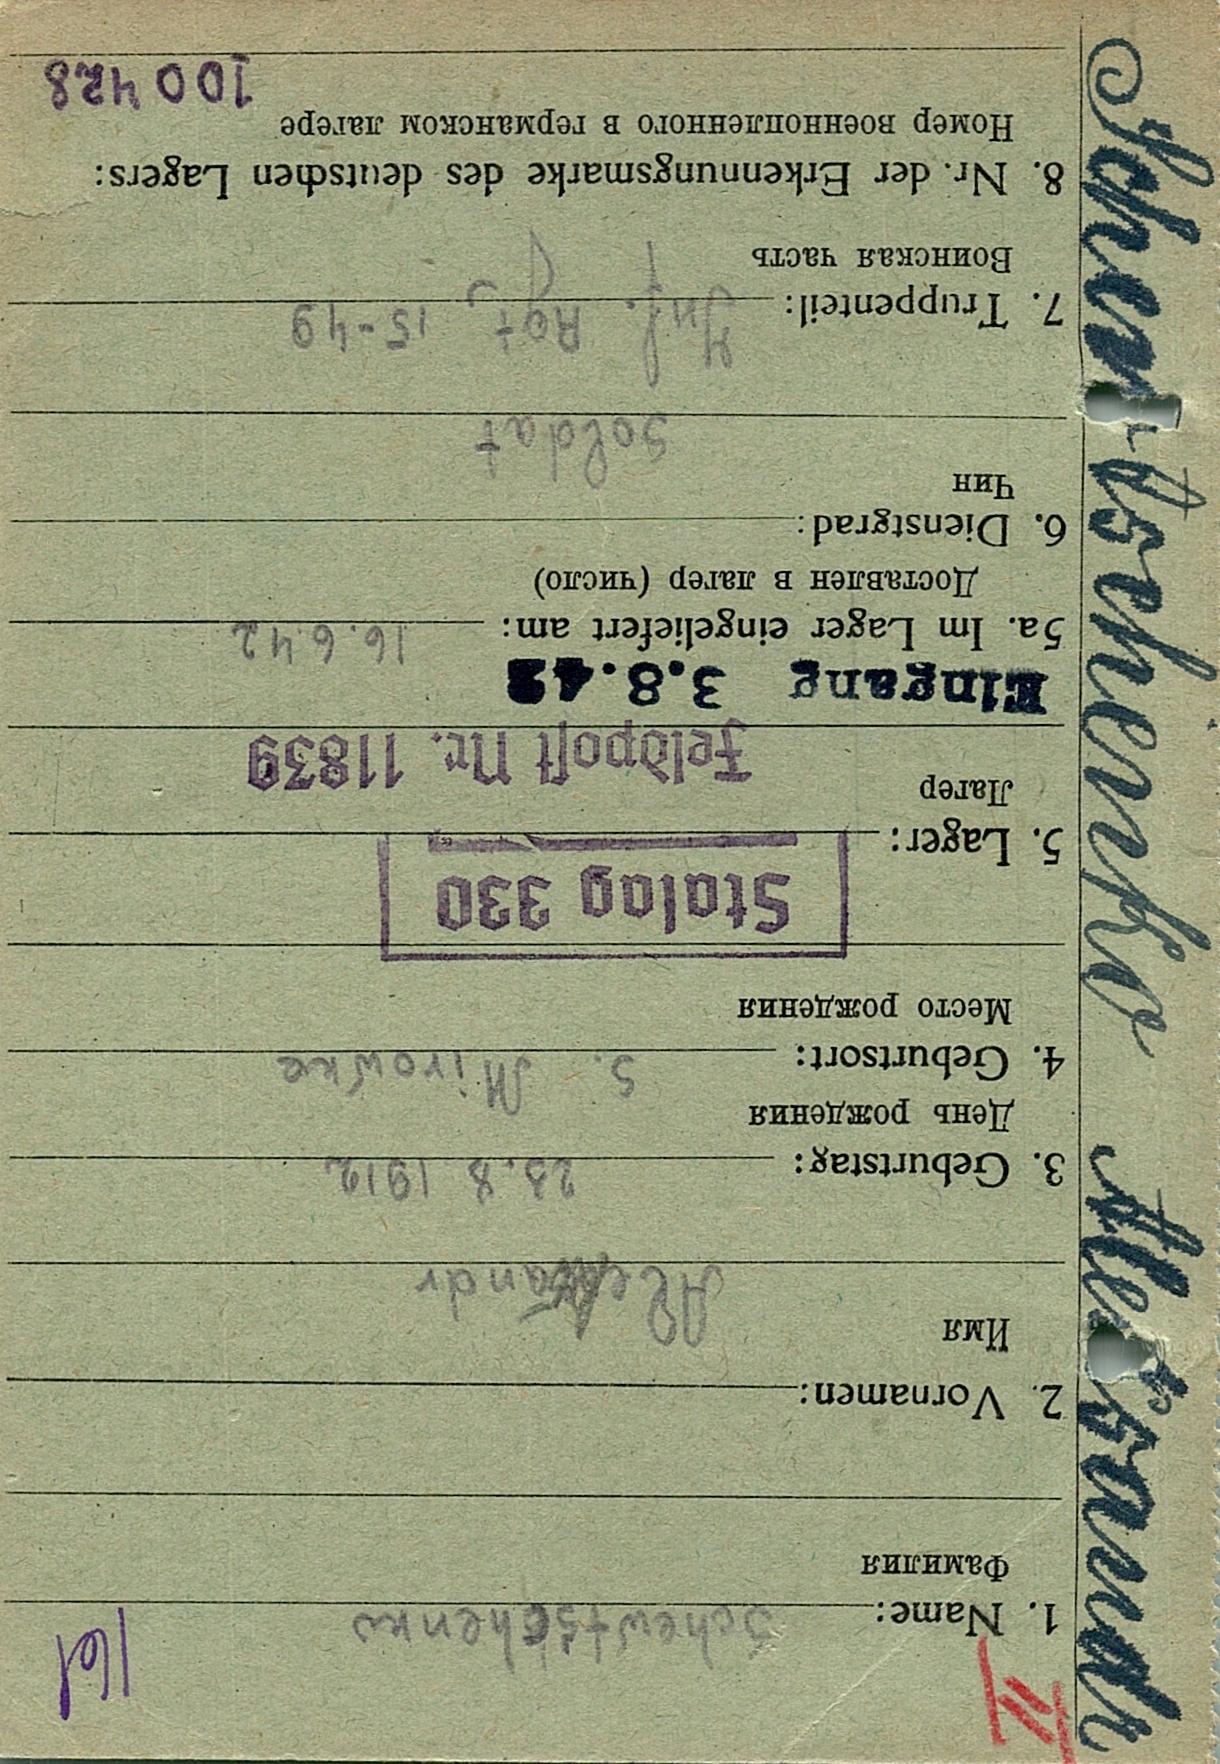 161
1. Name: Schewtschenko
Фамилия
2. Vornamen:
Имя
Alexandr
3. Geburtstag: 23.8 1912
День рождения
4. Geburtsort: S. Mirowka
Место рождения
Stalag 330
5. Lager:
Лагер
Feldpost Nr. 11839
Eingang 3.8.42
5a. Im Lager eingeliefert am: 16.6.42
Доставлен в лагер (число)
6. Dienstgrad:
Чин
Soldat
7. Truppenteil: Inf. Rgt. 15-49
Воинская часть
8. Nr. der Erkennungsmarke des deutschen Lagers:
Номер военнопленного в германском лагере
100428
Schewtschenko Alexandr